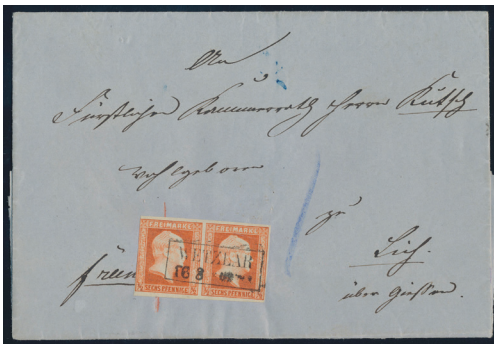 An
Fürstlichen Kammerrath Herrn Kutsch
Wohlgeboren
zu
Lich.
über Giessen.
FREIMARKE FREIMARKE
WETZLAR
16 8
½ SECHS PFENNIGE ½ ½ SECHS PFENNIGE ½